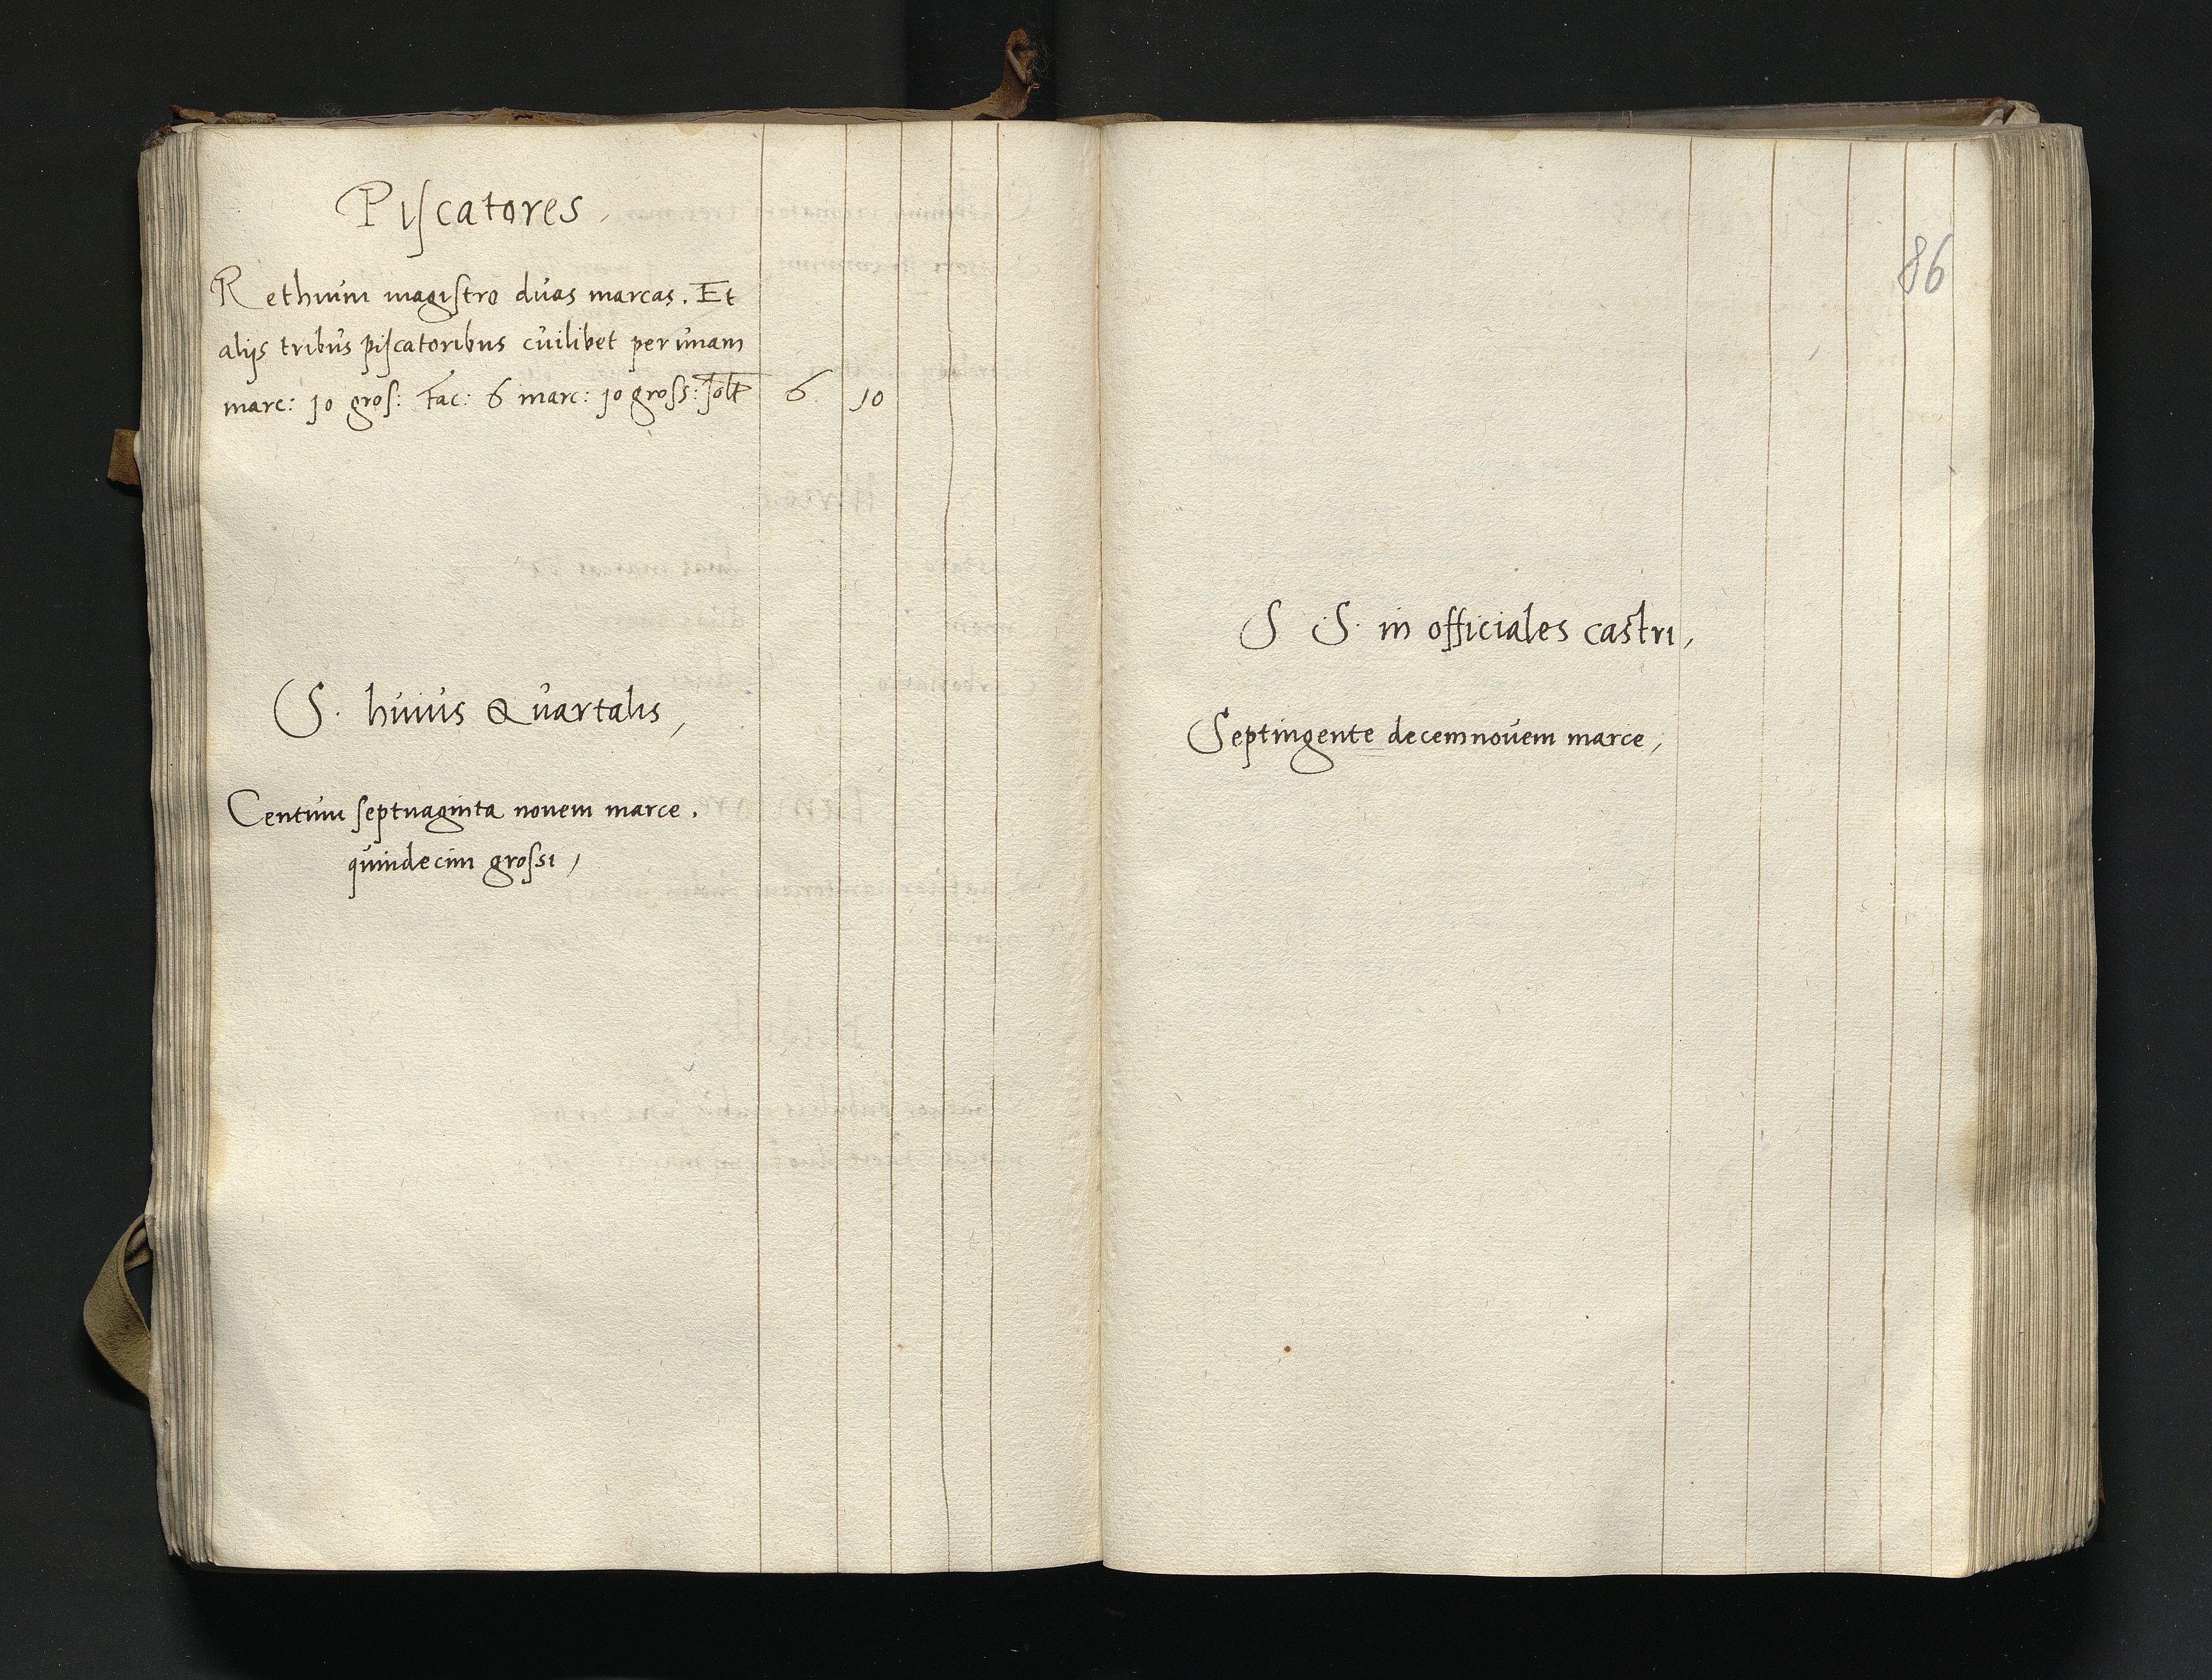 Piscatores,
Rethium magistro duas marcas. Et
alijs tribus piscatoribus cuilibet per unam
marc: 10 gros: fac: 6 marc: 10 gross: solt 6 10
S. huius Quartalis,
Centum septuaginta novem marce.
quindecim grossi,
86
S S. in officiales castri,
Septingente decemnovem marce,